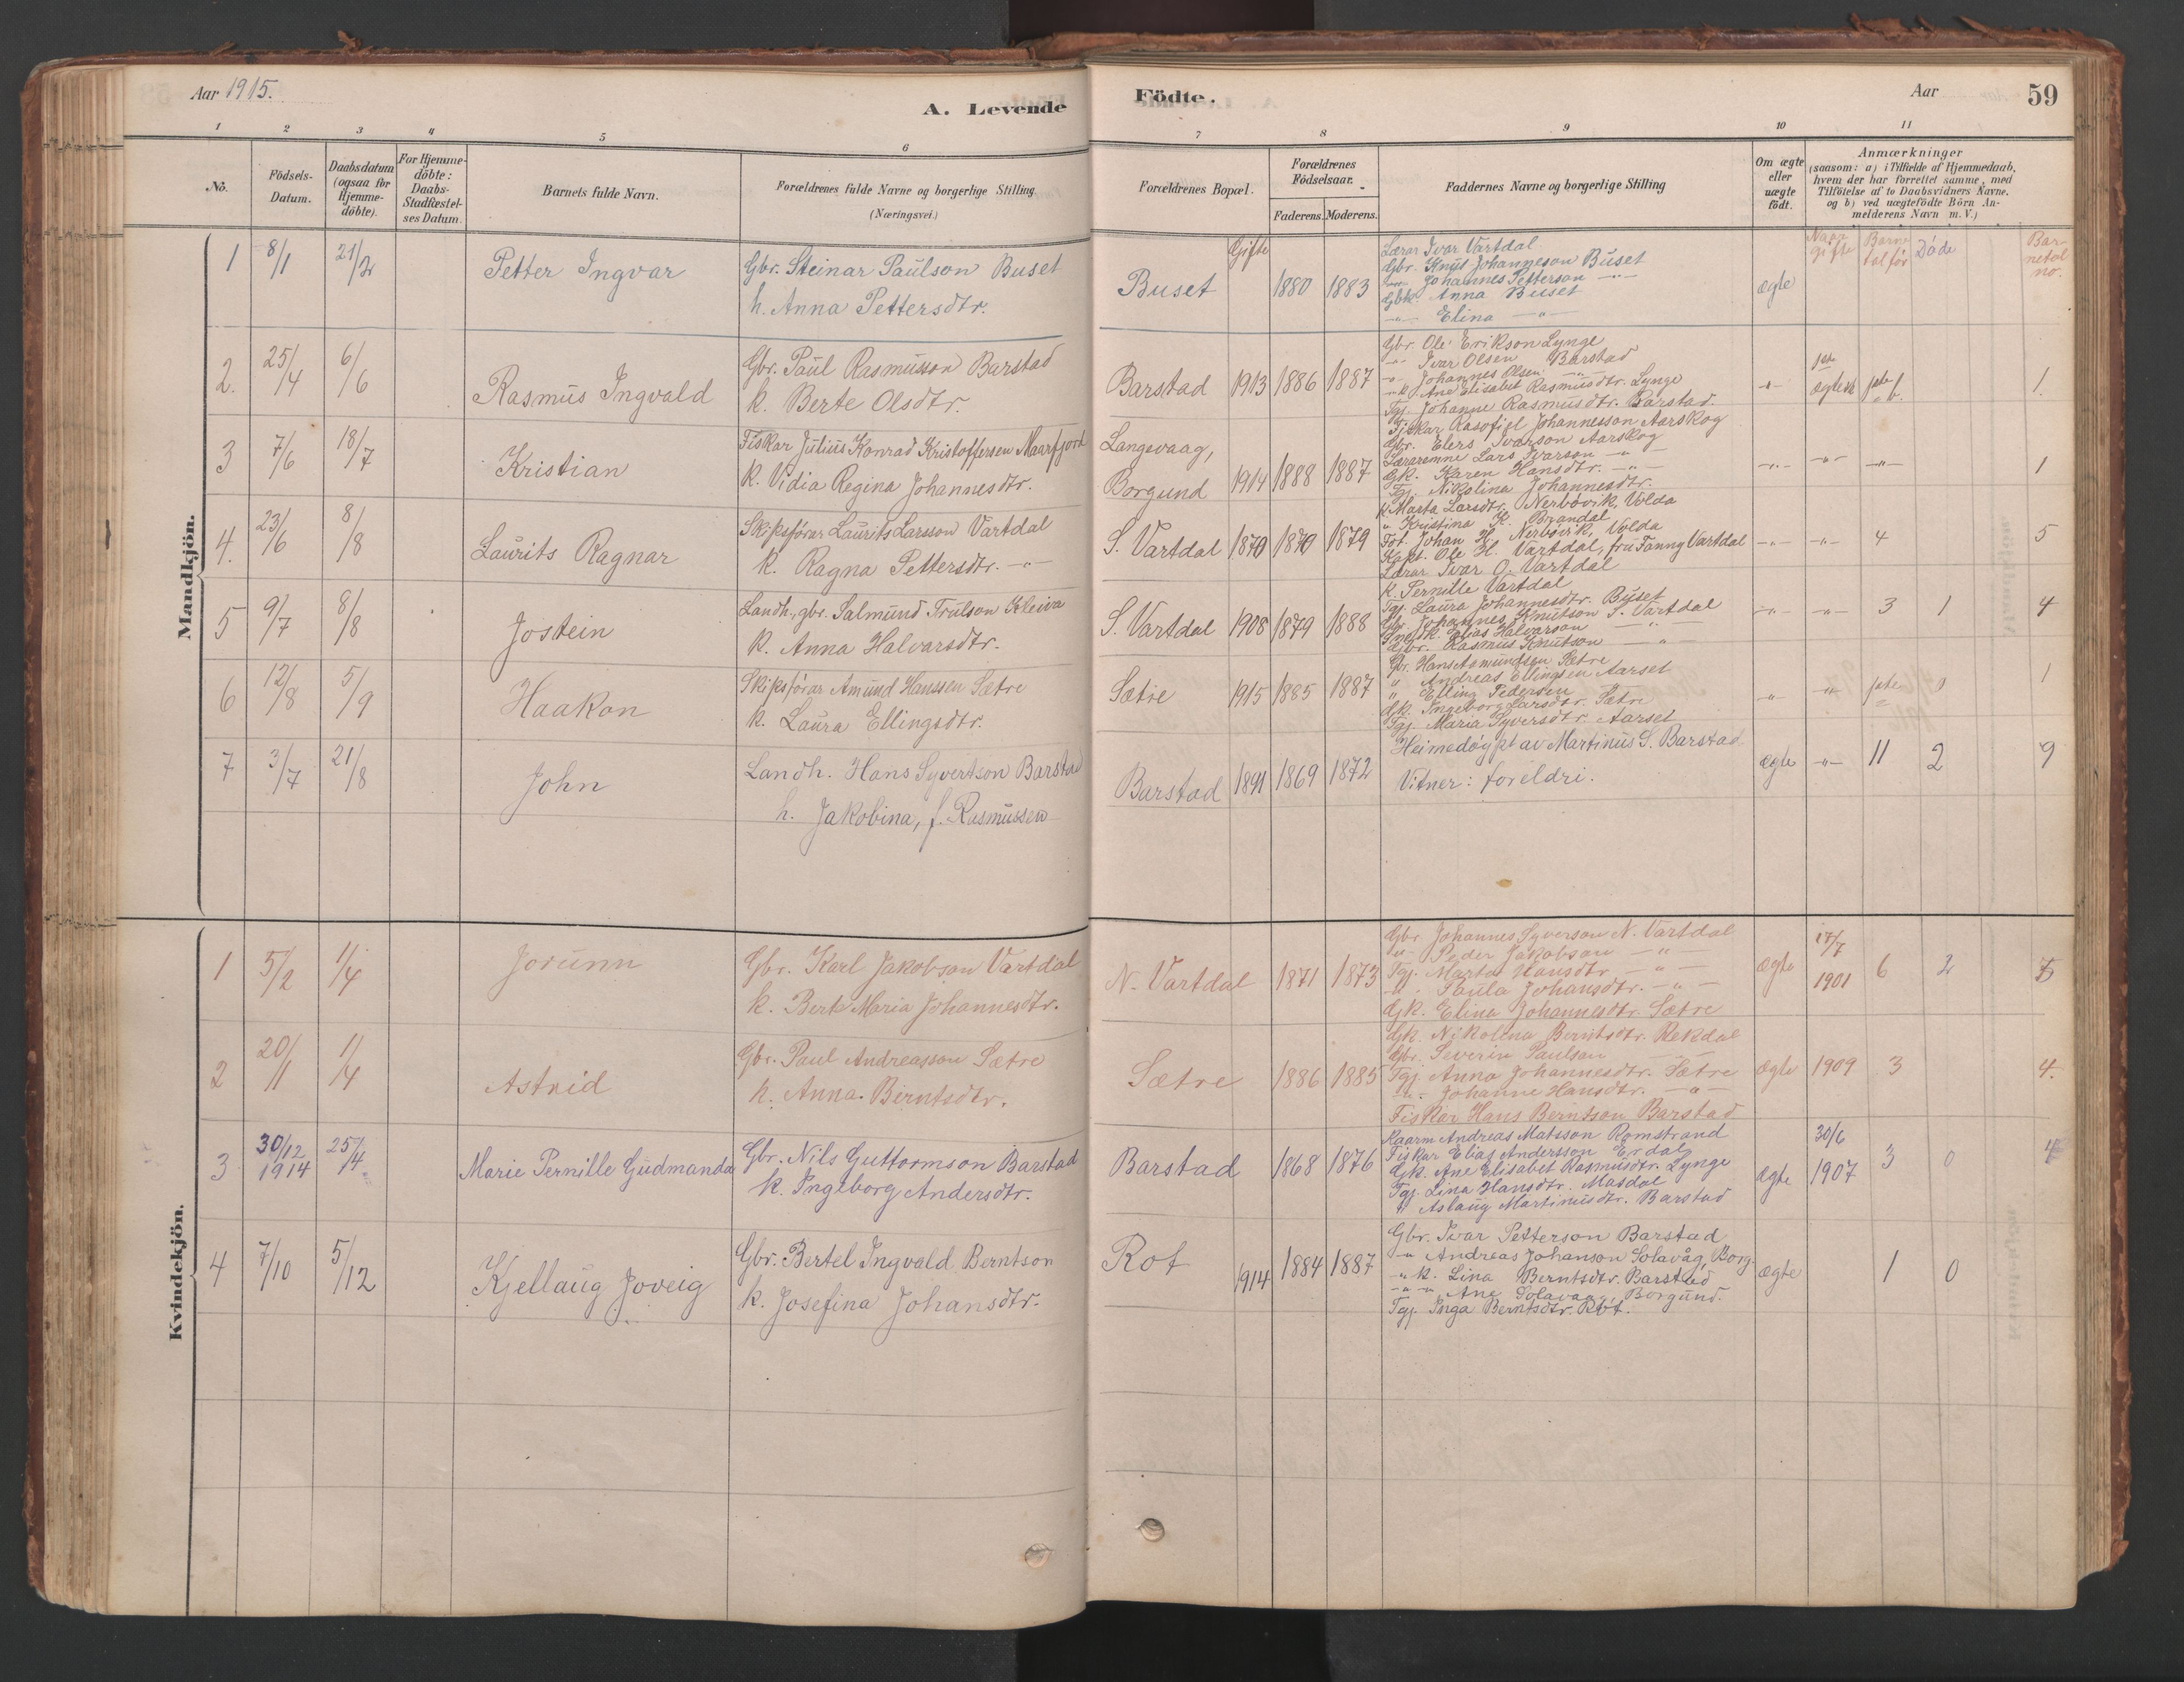 Aar 1915.
A. Levende
Födte.
Aar
59
1 2 3 4 5 6 7 8 9 10 11
No.
Födsels-Datum.
Daabsdatum (ogsaa for Hjemme-döbte).
For Hjemme-döbte: Daabs-Stadfæstel-ses Datum.
Barnets fulde Navn.
Forældrenes fulde Navne og borgerlige Stilling.
(Næringsvei.)
Forældrenes Bopæl.
Forældrenes Födselsaar.
Faderens. Moderens.
Faddernes Navne og borgerlige Stilling
Om ægte eller uægte födt.
Anmærkninger
(saasom: a) i Tilfælde af Hjemmedaab,
hvem der har forrettet samme, med
Tilföielse af to Daabsvidners Navne.
og b) ved uægtefödte Börn An-
melderens Navn m. V.)
Mandkjön.
Gifte
Naar gifte
Barnetal før
Døde
Barnetal no.
1 8/1 21/2 Petter Ingvar
Gbr. Steinar Paulson Buset
h. Anna Pettersdtr.
Buset 1880 1883
Lærar Ivar Vartdal
Gbr. Knut Johanneson Buset
-"- Johannes Petterson -"-
Gbk. Anna Buset
-"- Elina -"-
ægte
2. 25/4 6/6 Rasmus Ingvald
Gbr. Paul Rasmusson Barstad
k. Berte Olsdtr.
Barstad 1913 1886 1887
Gbr. Ole Erikson Lynge
-"- Ivar Olsen Barstad
-"- Johannes Olsen -"-
-"k. Ane Elisabet Rasmusdtr. Lynge
Tgj. Johanne Rasmusdtr. Barstad.
-"- 1ste ægtesk 1ste b. 1.
3 7/6 18/7 Kristian
Fiskar Julius Konrad Kristoffersen Maarfjord
k. Vidia Regina Johannesdtr.
Langevaag,
Borgund 1914 1888 1887
Fiskar Rasofiel Johannesson Aarskog
Gbr. Elers Ivarson Aarskog
Læraremne Lars Ivarson -"-
Gk. Karen Hansdtr. -"-
Tgj. Nikolina Johannesdtr.
-"- -"- -"- 1
4. 23/6 8/8 Laurits Ragnar
Skipsförar Laurits Larsson Vartdal
k. Ragna Pettersdtr. -"-
S. Vartdal 1870 1879
k. Marta Larsdtr. Nerbøvik, Volda
" Kristina K. Brandal
Fot. Johan H. Nerbøvik, Volda
Kapt. Ole H. Vartdal, fru Fanny Vartdal
Lærar Ivar O. Vartdal
-"- -"- 4 5
5 9/7 8/8 Jostein
Landh., gbr. Salmund Trulson Kleiva
k. Anna Halvarsdtr.
S. Vartdal 1908 1879 1888
k. Pernille Vartdal
Tgj. Laura Johannesdtr. Buset
Gbr. Johannes Knutson S. Vartdal
Elias Halvarson -"-
Gbr. Rasmus Knutson -"-
-"- -"- 3 1 4
6 12/8 5/9 Haakon
Skipsförar Amund Hanssen Sætre
k. Laura Ellingsdtr.
Sætre 1915 1885 1887
Gbr. Hans Asmundsen Sætre
" Andreas Ellingsen Aarset
" Elling Pedersen
Gk. Ingeborg Larsdtr. Sætre
Tgj. Maria Syversdtr. Aarset
-"- -"- 1ste 0 1
7 3/7 21/8 John
Landh. Hans Syvertson Barstad
h. Jakobina, f. Rasmussen
Barstad 1891 1869 1872
Heimedøypt av Martinus S. Barstad
Vitner: foreldri.
ægte -"- 11 2 9
Kvindekjön.
1 5/2 1/4 Jorunn
Gbr. Karl Jakobson Vartdal
k. Berte Maria Johannesdtr.
N. Vartdal 1871 1873
Gbr. Johannes Syverson N. Vartdal
-"- Peder Jakobson -"-
Tgj. Marta Hansdtr. -"-
-"- Paula Johansdtr. -"-
Gk. Elina Johannesdtr. Sætre
ægte 17/7 1901 6 2 5
2 20/1 1/4 Astrid
Gbr. Paul Andreasson Sætre
k. Anna Berntsdtr.
Sætre 1886 1885
Gk. Nikolina Berntsdtr. Rekdal
Gbr. Severin Paulson
Tgj. Anna Johannesdtr. Sætre
-"- Johanne Hansdtr. -"-
Fiskar Hans Berntson Barstad
ægte 1909 3 4.
3 30/12 1914 25/4 Marie Pernille Gudmanda
Gbr. Nils Guttormson Barstad
k. Ingeborg Andersdtr.
Barstad 1868 1876
Kaarm Andreas Matsson Romstrand
Fiskar Elias Andersson Erdal
Gk. Ane Elisabet Rasmusdtr. Lynge
Tgj. Lina Hansdtr. Masdal
" Aslaug Martinusdtr. Barstad
ægte 30/6 1907 3 0 4
4 7/10 5/12 Kjellaug Joveig
Gbr. Bertel Ingvald Berntson
k. Josefina Johansdtr.
Rot 1914 1884 1887
Gbr. Ivar Petterson Barstad
-"- Andreas Johanson Solavåg, Borg.
-"k. Lina Berntsdtr. Barstad
-"-"- Ane Solavaag, Borgund.
Tgj. Inga Berntsdtr. Rot.
ægte 1 0